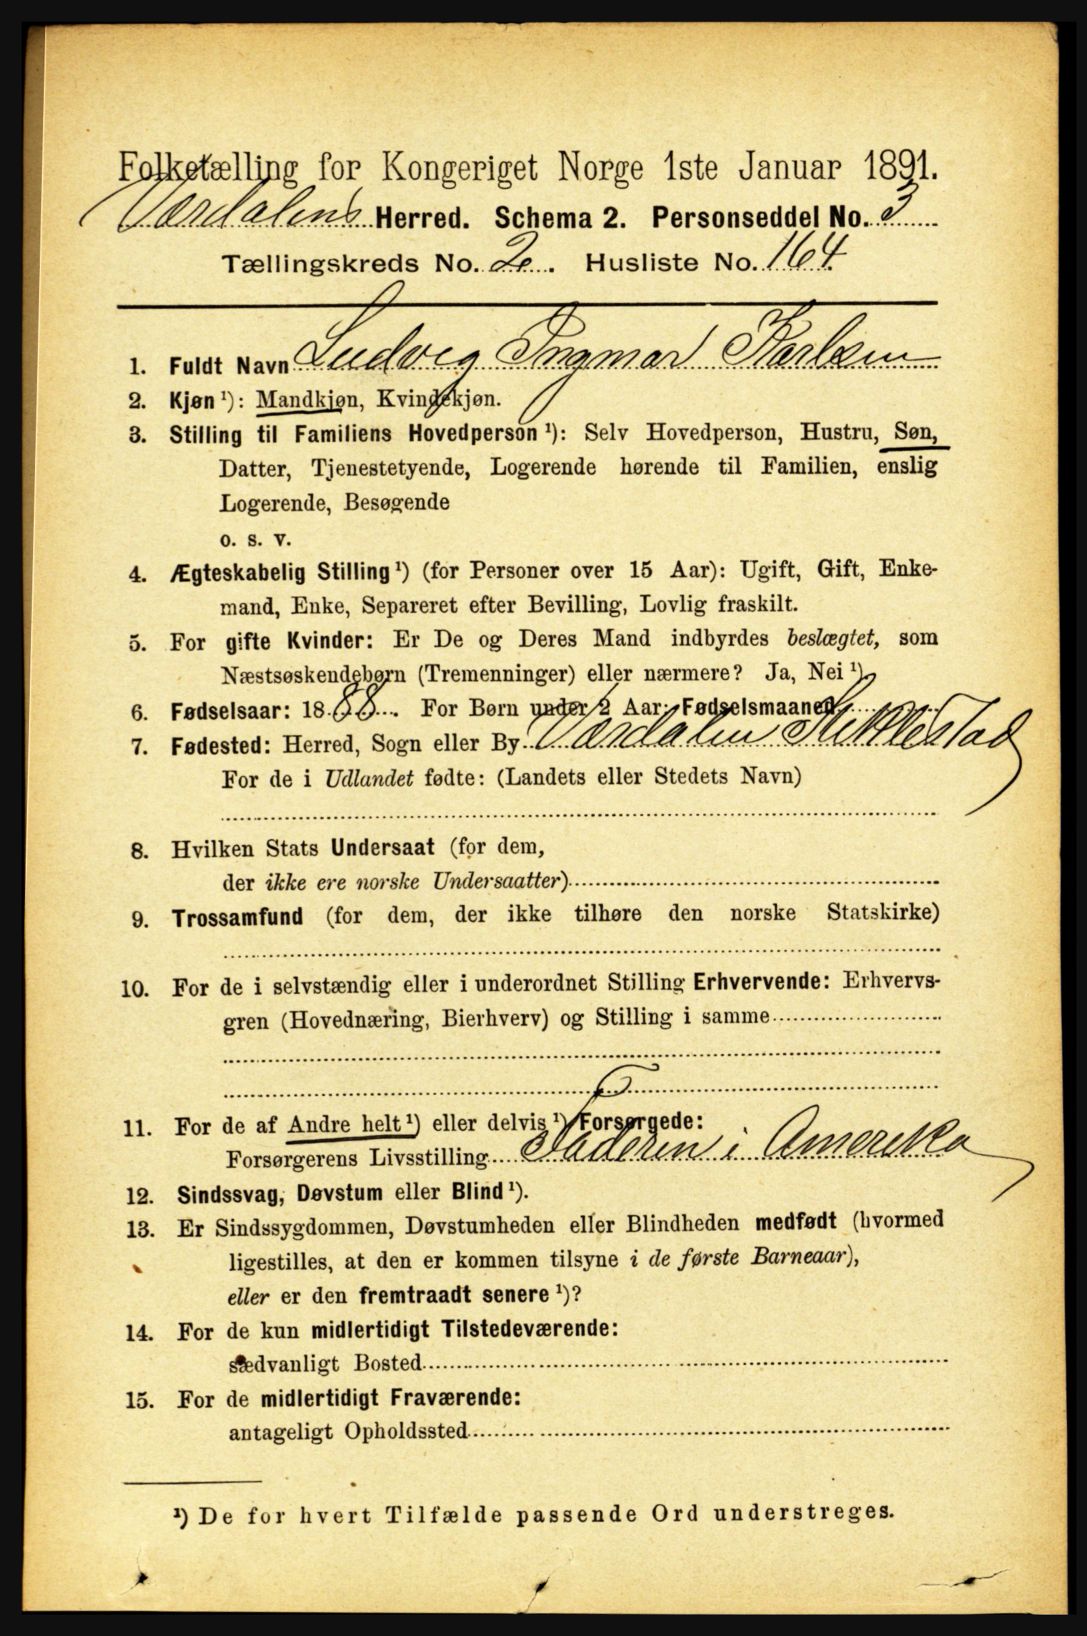 Folketælling for Kongeriget Norge 1ste Januar 1891.
Værdalens Herred. Schema 2. Personseddel No. 3
Tællingskreds No. 2. Husliste No. 164.
1. Fuldt Navn Ludvig Ingmar Karlsen
2. Kjøn ¹): Mandkjøn, Kvindekjøn.
3. Stilling til Familiens Hovedperson ¹): Selv Hovedperson, Hustru, Søn,
Datter, Tjenestetyende, Logerende hørende til Familien, enslig
Logerende, Besøgende
o. s. v.
4. Ægteskabelig Stilling ¹) (for Personer over 15 Aar): Ugift, Gift, Enke-
mand, Enke, Separeret efter Bevilling, Lovlig fraskilt.
5. For gifte Kvinder: Er De og Deres Mand indbyrdes beslægtet, som
Næstsøskendebørn (Tremenninger) eller nærmere? Ja, Nei ¹)
6. Fødselsaar: 1888. For Børn under 2 Aar: Fødselsmaaned
7. Fødested: Herred, Sogn eller By Værdalen Stiklestad
For de i Udlandet fødte: (Landets eller Stedets Navn)
8. Hvilken Stats Undersaat (for dem,
der ikke ere norske Undersaatter)
9. Trossamfund (for dem, der ikke tilhøre den norske Statskirke)
10. For de i selvstændig eller i underordnet Stilling Erhvervende: Erhvervs-
gren (Hovednæring, Bierhverv) og Stilling i samme
11. For de af Andre helt ¹) eller delvis ¹) Forsørgede:
Forsørgerens Livsstilling Faderen i Amerika
12. Sindssvag, Døvstum eller Blind ¹).
13. Er Sindssygdommen, Døvstumheden eller Blindheden medfødt (hvormed
ligestilles, at den er kommen tilsyne i de første Barneaar),
eller er den fremtraadt senere ¹)?
14. For de kun midlertidigt Tilstedeværende:
sædvanligt Bosted
15. For de midlertidigt Fraværende:
antageligt Opholdssted
¹) De for hvert Tilfælde passende Ord understreges.